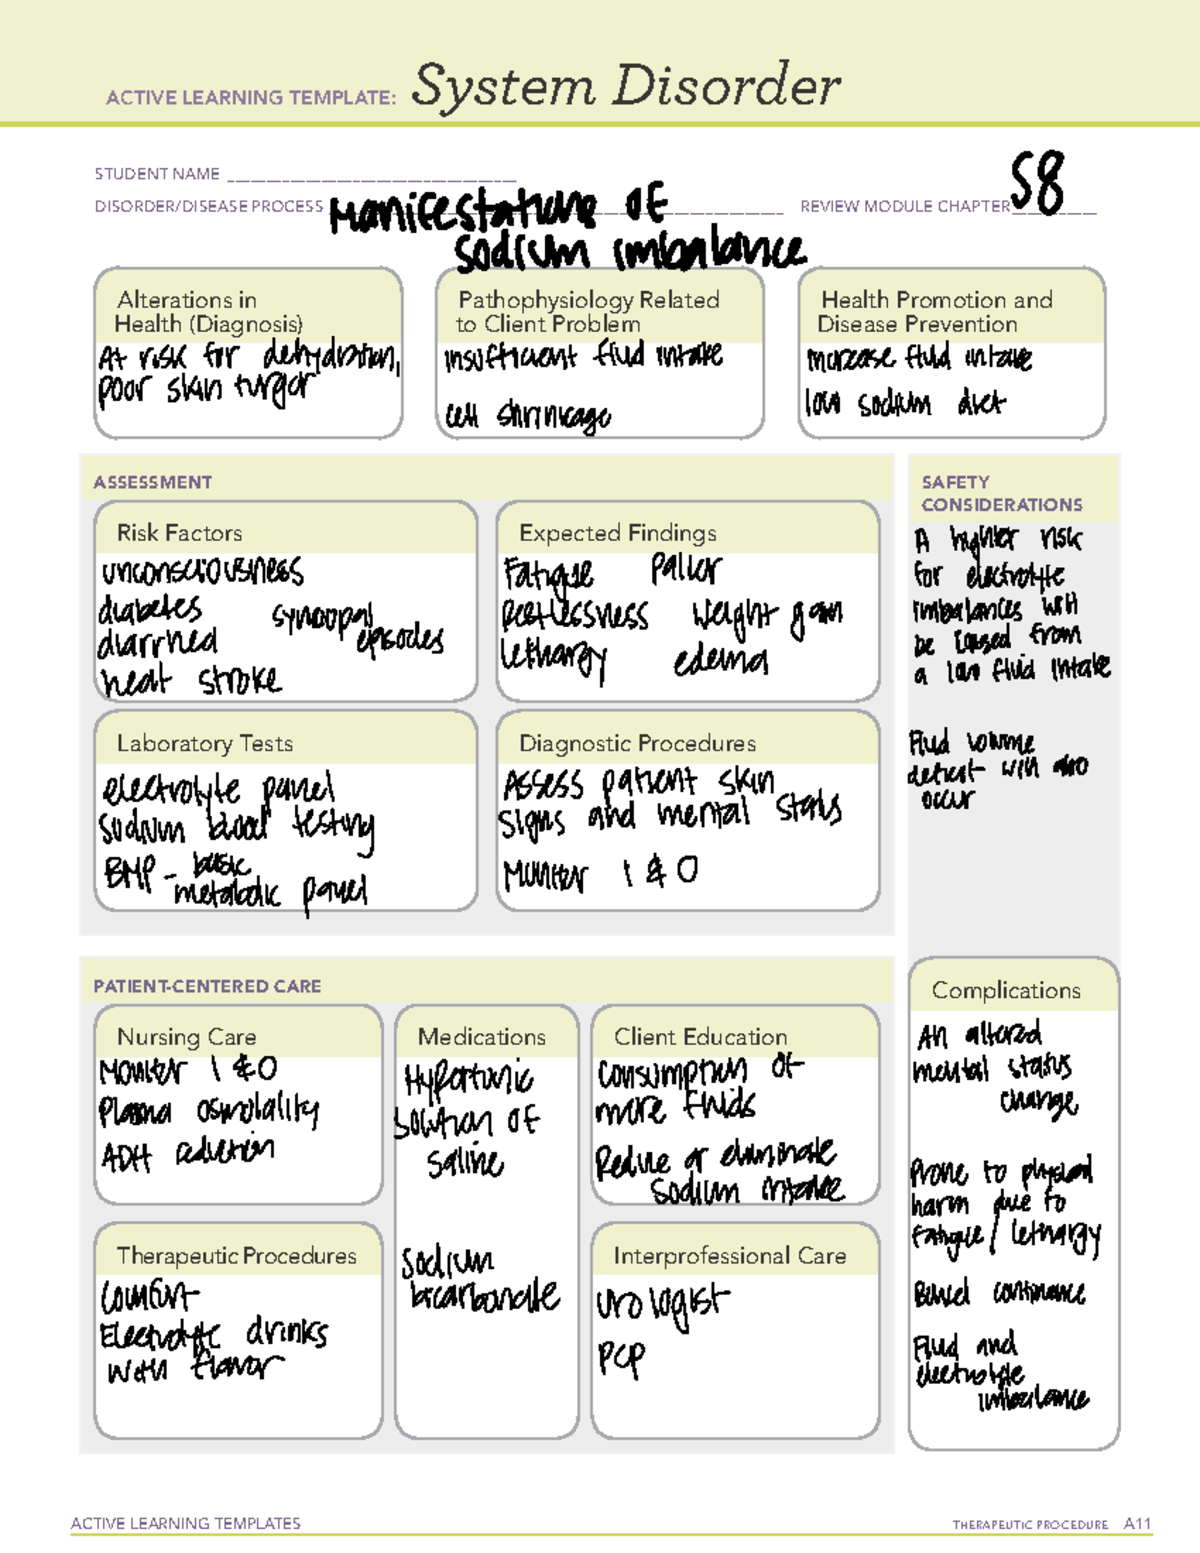 ACTIVE LEARNING TEMPLATE: System Disorder
STUDENT NAME
DISORDER/DISEASE PROCESS Manifestations of REVIEW MODULE CHAPTER 58
sodium imbalance
Alterations in
Health (Diagnosis)
At risk for dehydration,
poor skin turgor
Pathophysiology Related
to Client Problem
insufficient fluid intake
cell shrinkage
Health Promotion and
Disease Prevention
increase fluid intake
low sodium diet
ASSESSMENT
Risk Factors
unconsciousness
diabetes
diarrhea
heat stroke
syncopal
episodes
Expected Findings
Fatigue Pallor
Restlessness weight gain
lethargy edema
Laboratory Tests
electrolyte panel
sodium blood testing
BMP - basic
metabolic panel
Diagnostic Procedures
Assess patient skin
signs and mental status
Monitor I & O
SAFETY
CONSIDERATIONS
A higher risk
for electrolyte
imbalances will
be caused from
a low fluid intake
Fluid volume
deficit will also
occur
PATIENT-CENTERED CARE
Nursing Care
Monitor I & O
Plasma osmolality
ADH
Medications
Hypertonic
solution of
saline
Sodium
bicarbonate
Client Education
Consumption of
more fluids
Reduce or eliminate
sodium intake
Therapeutic Procedures
Comfort
Electrolyte drinks
with flavor
Interprofessional Care
urologist
PCP
Complications
An altered
mental status
change
Prone to physical
harm due to
fatigue / lethargy
Bowel continence
Fluid and
electrolyte
imbalance
ACTIVE LEARNING TEMPLATES
THERAPEUTIC PROCEDURE A11